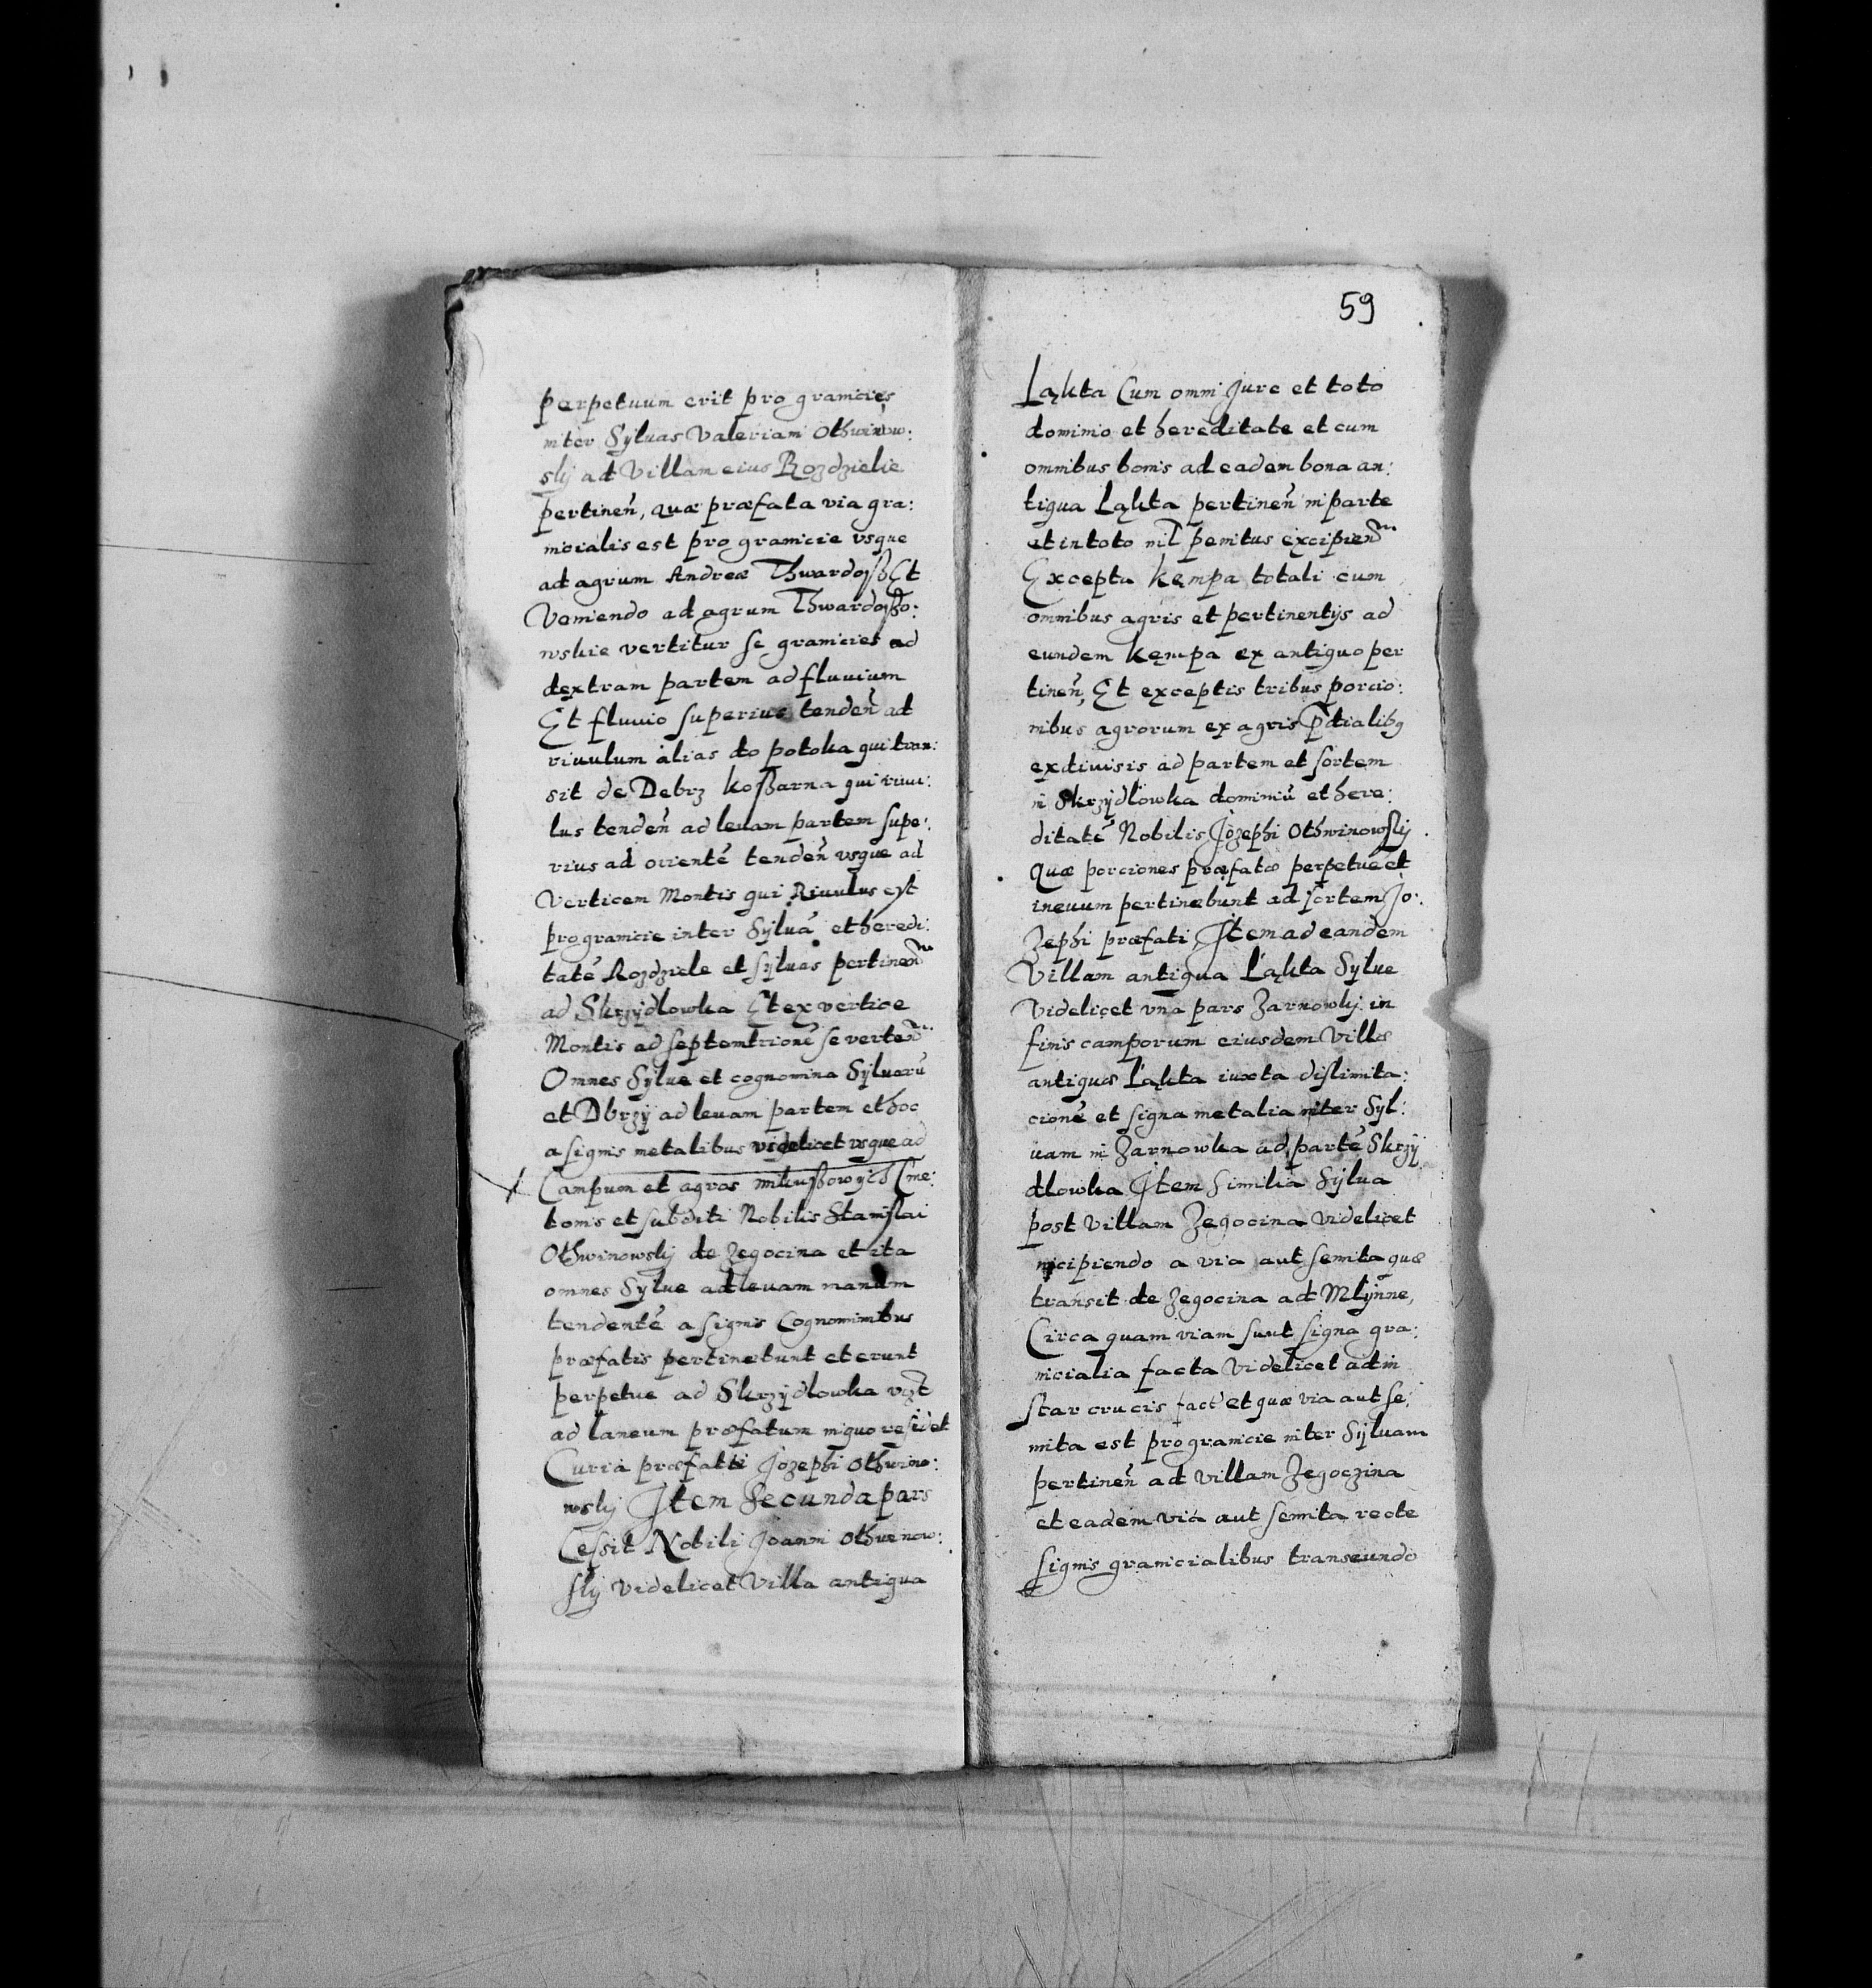 perpetuum erit pro granicies
inter Sÿluas Valeriani Othwinow:
slÿ ad Villam eius Rozdzielie
pertineñ, quæ præfata via gra:
nicialis est pro granicie vsque
ad agrum Andreæ Thwardoſß Et
Veniendo ad agrum Thwardoſßo:
wskie vertitur se granicies ad
dextram partem ad fluuium
Et fluuio superius tendeñ ad
riuulum alias do potoka qui tran:
sit de Debrz koſßarna qui riuu:
lus tendeñ ad leuam partem supe:
rius ad orientē tendeñ vsque ad
Verticem Montis qui Riuulus est
pro granicie inter Sÿluā et heredi:
tatē Rozdziele et sÿluas pertineñ
ad Skrzÿdlowka Et ex vertice
Montis ad septemtrionē se verteñ
Omnes Sÿluæ et cognomina Sÿluarū
et Dbrzÿ ad leuam partem et hoc
a signis metalibus videlicet vsque ad
Campum et agros mikuſßowÿch Cme:
tonis et subditi Nobilis Stanislai
Othwinowslÿ de Zegocina et ita
omnes Sÿluæ ad leuam manum
tendentē a signis Cognominibus
præfatis pertinebunt et erunt
perpetuæ ad Skrzÿdlowka vzt
ad laneum præfatum in quo residet
Curia præfatti Jozephi Othwino:
wslÿ Item Secunda pars
Cessit Nobili Joanni Othwinow:
slÿ videlicet Villa antiqua
59
Ląkta Cum omni Jure et toto
dominio et hereditate et cum
omnibus bonis ad eadem bona an:
tiqua Ląkta pertineñ in parte
et in toto nil penitus excipieñ
Excepta kępa totali cum
omnibus agris et pertinentÿs ad
eundem kęmpa ex antiquo per
tineñ, Et exceptis tribus porcio:
nibus agrorum ex agris prdialibg
ex diuisis ad partem et sortem
in Skrzÿdlowka dominiū et here:
ditatē Nobilis Jozephi Othwinowslÿ
quæ porciones præfatæ perpetue et
in euum pertinebunt ad sortem Jo:
Zephi præfati, Item ad eandem
Villam antiqua Ląkta Sÿluæ
Videlicet vna pars Zarnowkÿ in
finis camporum eiusdem Villæ
antiquæ Ląkta iuxta dislimita:
cionē et signa metalia inter Sÿl:
uam in Zarnowka ad partē Skrzÿ
dlowka Item Similia Sÿlua
post Villam Zegocina Videlicet
incipiendo a via aut semita quæ
transit de Zegocina ad Mlÿnne,
Circa quam viam sunt signa gra:
nicialia facta Videlicet ad in
star crucis fact et quæ via aut se:
mita est pro granicie inter Sÿluam
pertineñ ad Villam Zegoczina
et eadem via aut semita recte
signis granicialibus transeundo